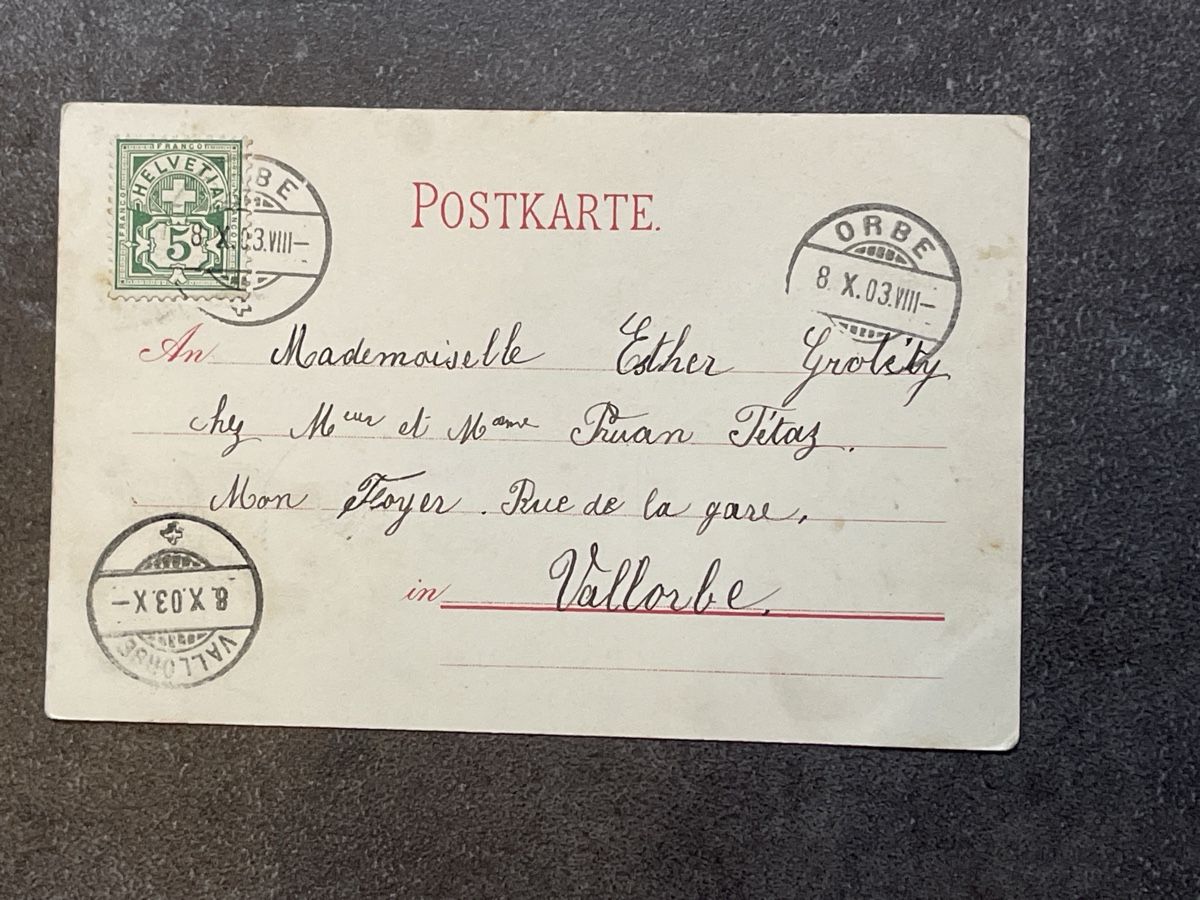 FRANCO
FRANCO
HELVETIA
5
ORBE
8. X. 03. VIII–
POSTKARTE.
ORBE
8. X. 03. VIII–
An Mademoiselle Esther
chez Meur et Mame Tétaz.
Mon Foyer. Rue de la gare,
in Vallorbe.
8. X. 03. X –
VALLORBE